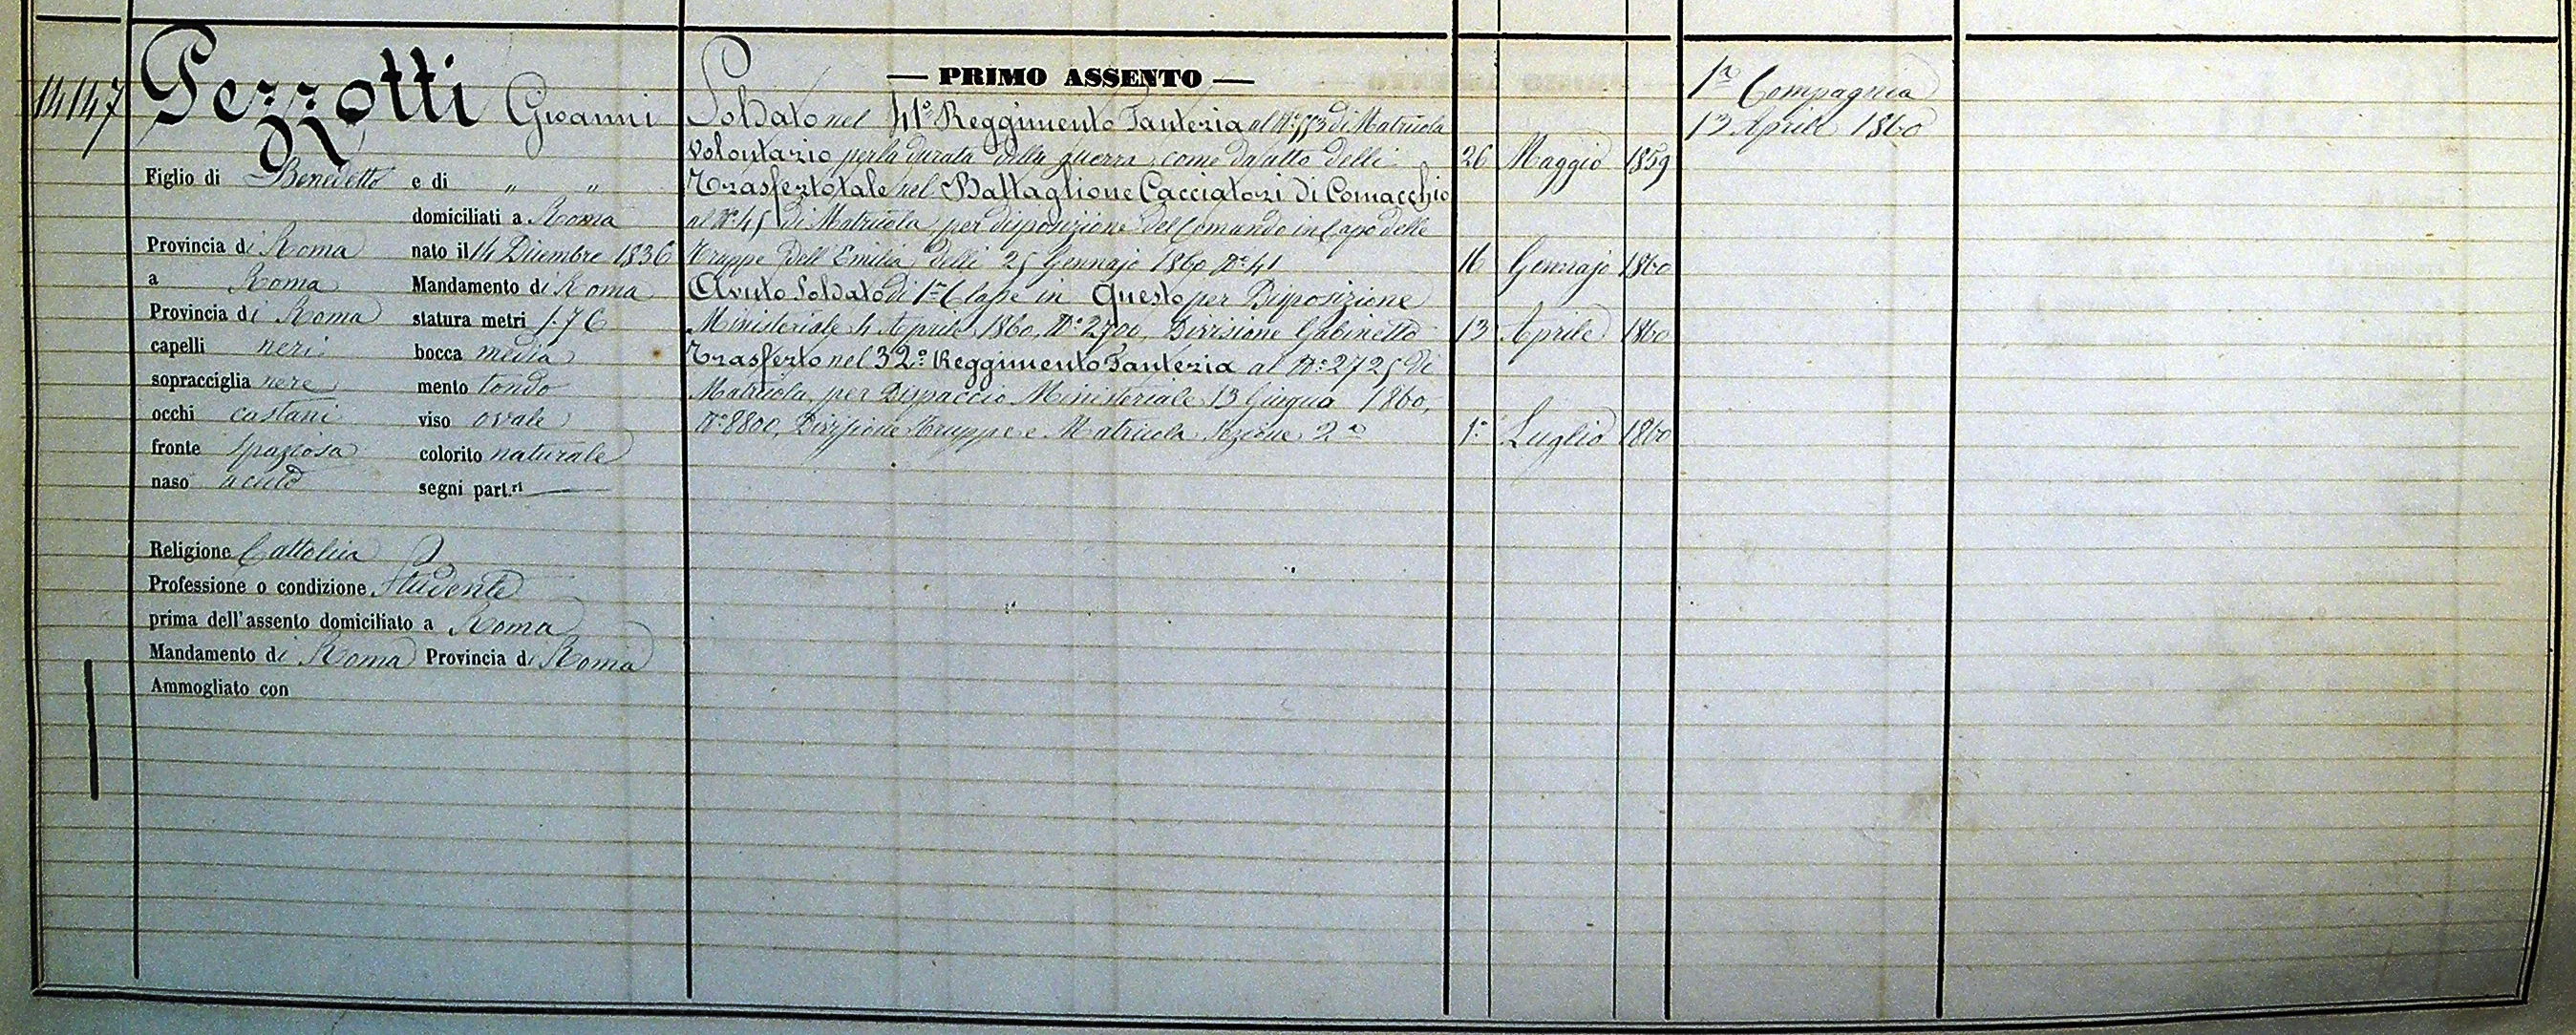 14147
Pezzotti Gioanni
Figlio di Benedetto e di " "
domiciliati a Roma
Provincia di Roma nato il 14 Dicembre 1836
a Roma Mandamento di Roma
Provincia di Roma statura metri 1.76
capelli neri bocca media
sopracciglia nere mento tondo
occhi castani viso ovale
fronte spaziosa colorito naturale
naso acuto segni part.ri —
Religione Cattolica
Professione o condizione Studente
prima dell'assento domiciliato a Roma
Mandamento di Roma Provincia di Roma
Ammogliato con
— PRIMO ASSENTO —
Soldato nel 41º Reggimento Fanteria al Nº di Matricola
volontario per la durata della guerra, come da atto delli 26 Maggio 1859
Trasferto tale nel Battaglione Cacciatori di Comacchio
al Nº 45 di Matricola, per disposizione del Comando in Capo delle
Truppe dell'Emilia, delli 25 Gennajo 1860 Nº 41 16 Gennajo 1860
Avuto Soldato di 1ª Classe in Questo per Disposizione
Ministeriale 4 Aprile 1860, Nº 2700, Divisione Gabinetto 13 Aprile 1860
Trasferto nel 32º Reggimento Fanteria al Nº 2725 di
Matricola, per Dispaccio Ministeriale 13 Giugno 1860,
Nº 8800, Divisione Truppe e Matricola Sezione 2ª 1º Luglio 1860
1ª Compagnia
13 Aprile 1860